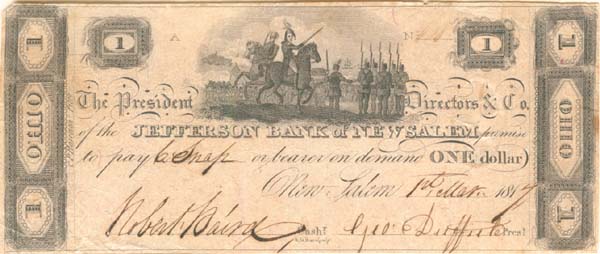 1 A N 1
1 1
The President Directors & Co.
OHIO OHIO
of the JEFFERSON BANK of NEW SALEM promise
to pay C Snap or bearer on demand ONE dollar
New Salem 1st Mar. 1817
1 1
Robert Baird Cash.r Geo. Prest